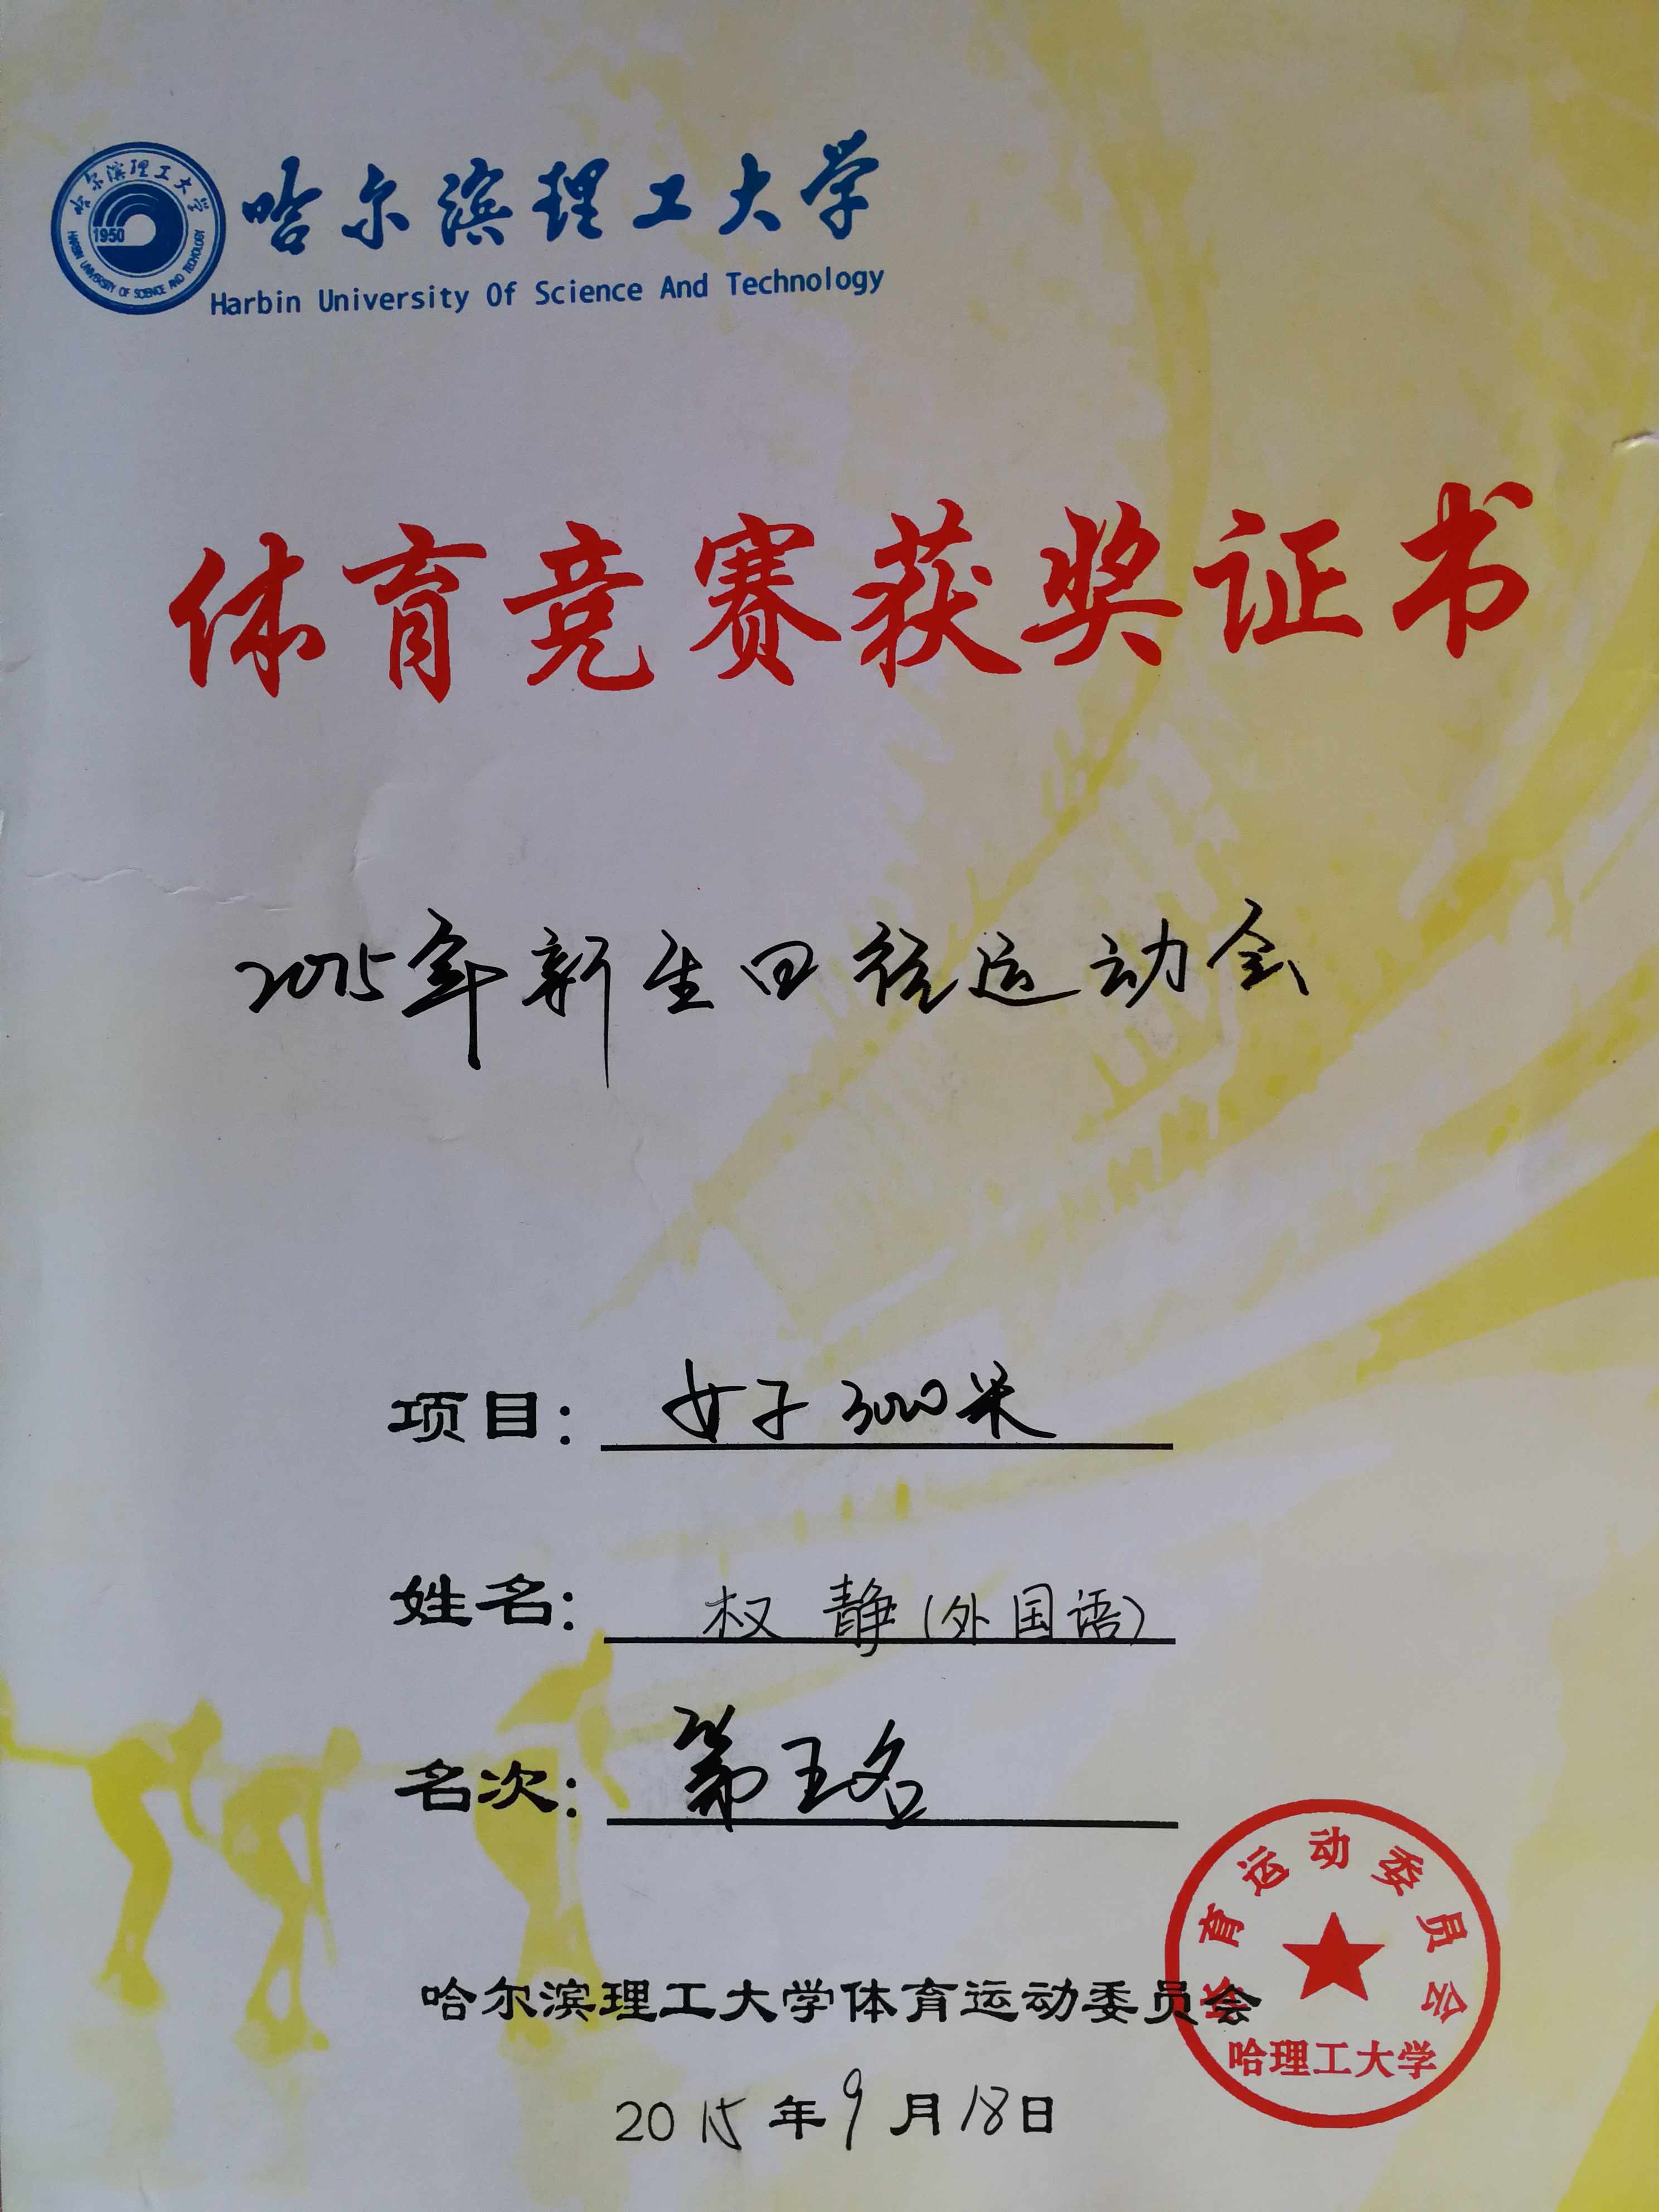 哈尔滨理工大学
1950
HARBIN UNIVERSITY OF SCIENCE AND TECHNOLOGY
哈尔滨理工大学
Harbin University Of Science And Technology
体育竞赛获奖证书
2015年新生田径运动会
项目: 女子3000米
姓名: 权静(外国语)
名次: 第五名
体育运动委员会
哈尔滨理工大学体育运动委员会
哈理工大学
2015年9月18日